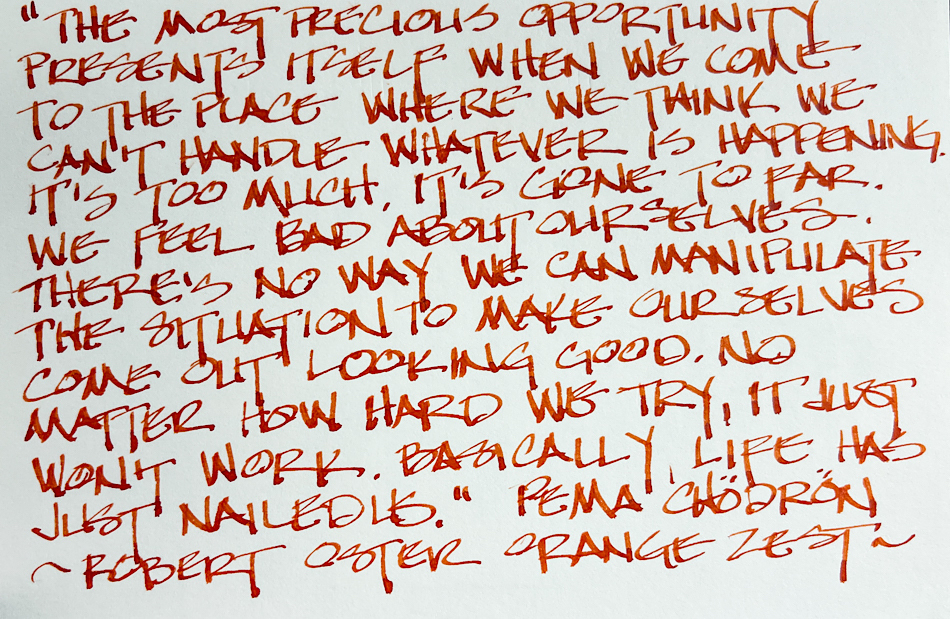 "THE MOST PRECIOUS OPPORTUNITY
PRESENTS ITSELF WHEN WE COME
TO THE PLACE WHERE WE THINK WE
CAN'T HANDLE WHATEVER IS HAPPENING.
IT'S TOO MUCH. IT'S GONE TO FAR.
WE FEEL BAD ABOUT OURSELVES.
THERE'S NO WAY WE CAN MANIPULATE
THE SITUATION TO MAKE OURSELVES
COME OUT LOOKING GOOD. NO
MATTER HOW HARD WE TRY, IT JUST
WON'T WORK. BASICALLY, LIFE HAS
JUST NAILED US." PEMA CHÖDRÖN
~ROBERT OSTER ORANGE ZEST~